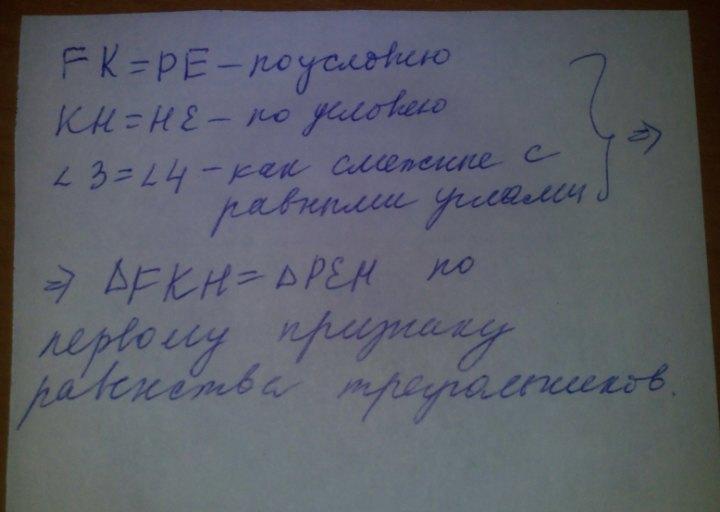 FK=PE – по условию
KH=HE – по условию
∠3=∠4 – как смежные с
равными углами
⇒
⇒ ΔFKH=ΔPEH по
первому признаку
равенства треугольников.